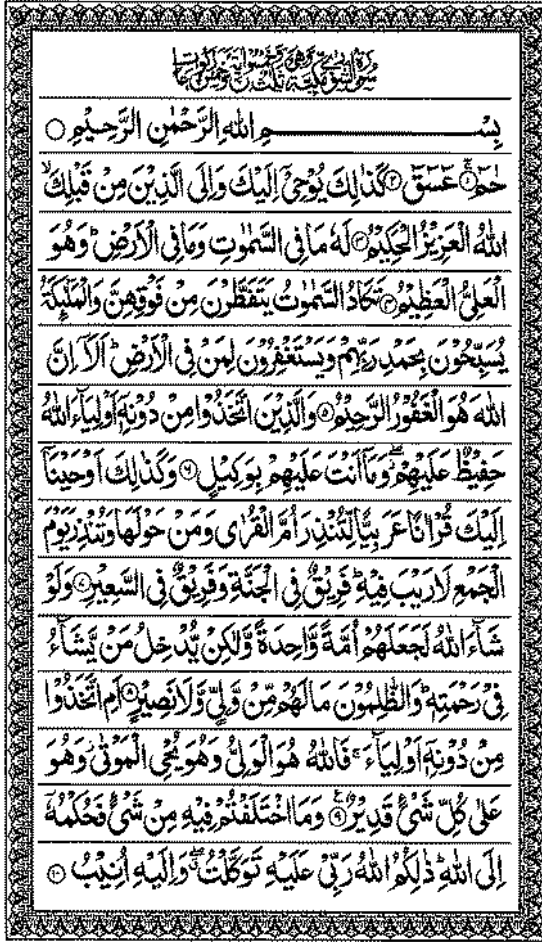 سورة الشورى مكية وهى ثلث وخمسون اية وخمس ركوعات
بِسْمِ اللهِ الرَّحْمٰنِ الرَّحِيْمِ ○
حٰمٓ ۚ﴿۱﴾ عٓسٓقٓ ﴿۲﴾ كَذٰلِكَ يُوْحِيْٓ اِلَيْكَ وَاِلَى الَّذِيْنَ مِنْ قَبْلِكَ ۙ
اللهُ الْعَزِيْزُ الْحَكِيْمُ ﴿۳﴾ لَهٗ مَا فِى السَّمٰوٰتِ وَمَا فِى الْاَرْضِ ؕ وَهُوَ
الْعَلِىُّ الْعَظِيْمُ ﴿۴﴾ تَكَادُ السَّمٰوٰتُ يَتَفَطَّرْنَ مِنْ فَوْقِهِنَّ وَالْمَلٰٓئِكَةُ
يُسَبِّحُوْنَ بِحَمْدِ رَبِّهِمْ وَيَسْتَغْفِرُوْنَ لِمَنْ فِى الْاَرْضِ ؕ اَلَاۤ اِنَّ
اللهَ هُوَ الْغَفُوْرُ الرَّحِيْمُ ﴿۵﴾ وَالَّذِيْنَ اتَّخَذُوْا مِنْ دُوْنِهٖۤ اَوْلِيَآءَ اللهُ
حَفِيْظٌ عَلَيْهِمْ ۖ وَمَاۤ اَنْتَ عَلَيْهِمْ بِوَكِيْلٍ ﴿۶﴾ وَكَذٰلِكَ اَوْحَيْنَاۤ
اِلَيْكَ قُرْاٰنًا عَرَبِيًّا لِّتُنْذِرَ اُمَّ الْقُرٰى وَمَنْ حَوْلَهَا وَتُنْذِرَ يَوْمَ
الْجَمْعِ لَا رَيْبَ فِيْهِ ؕ فَرِيْقٌ فِى الْجَنَّةِ وَفَرِيْقٌ فِى السَّعِيْرِ ﴿۷﴾ وَلَوْ
شَآءَ اللهُ لَجَعَلَهُمْ اُمَّةً وَّاحِدَةً وَّلٰكِنْ يُّدْخِلُ مَنْ يَّشَآءُ
فِىْ رَحْمَتِهٖ ؕ وَالظّٰلِمُوْنَ مَا لَهُمْ مِّنْ وَّلِىٍّ وَّلَا نَصِيْرٍ ﴿۸﴾ اَمِ اتَّخَذُوْا
مِنْ دُوْنِهٖۤ اَوْلِيَآءَ ۚ فَاللهُ هُوَ الْوَلِىُّ وَهُوَ يُحْىِ الْمَوْتٰى ؗ وَهُوَ
عَلٰى كُلِّ شَىْءٍ قَدِيْرٌ ﴿۹﴾ وَمَا اخْتَلَفْتُمْ فِيْهِ مِنْ شَىْءٍ فَحُكْمُهٗۤ
اِلَى اللهِ ؕ ذٰلِكُمُ اللهُ رَبِّىْ عَلَيْهِ تَوَكَّلْتُ ۖ وَاِلَيْهِ اُنِيْبُ ﴿۱۰﴾